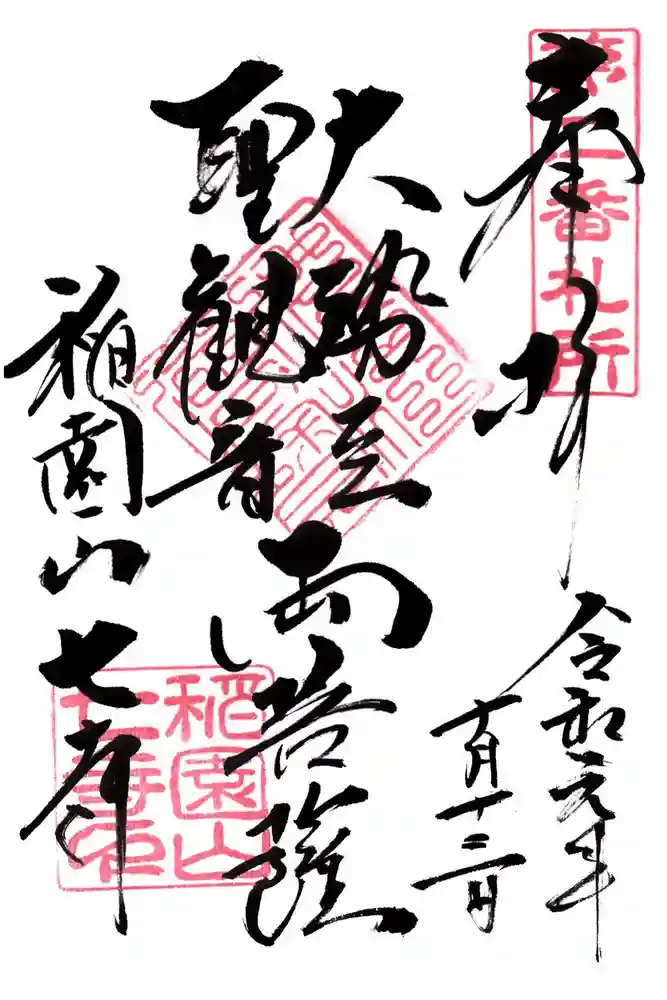 奉拝
番札所
令和元年
十月十三日
大勢至
聖観音
両菩薩
稲園山七寺
稲園山
七寺印